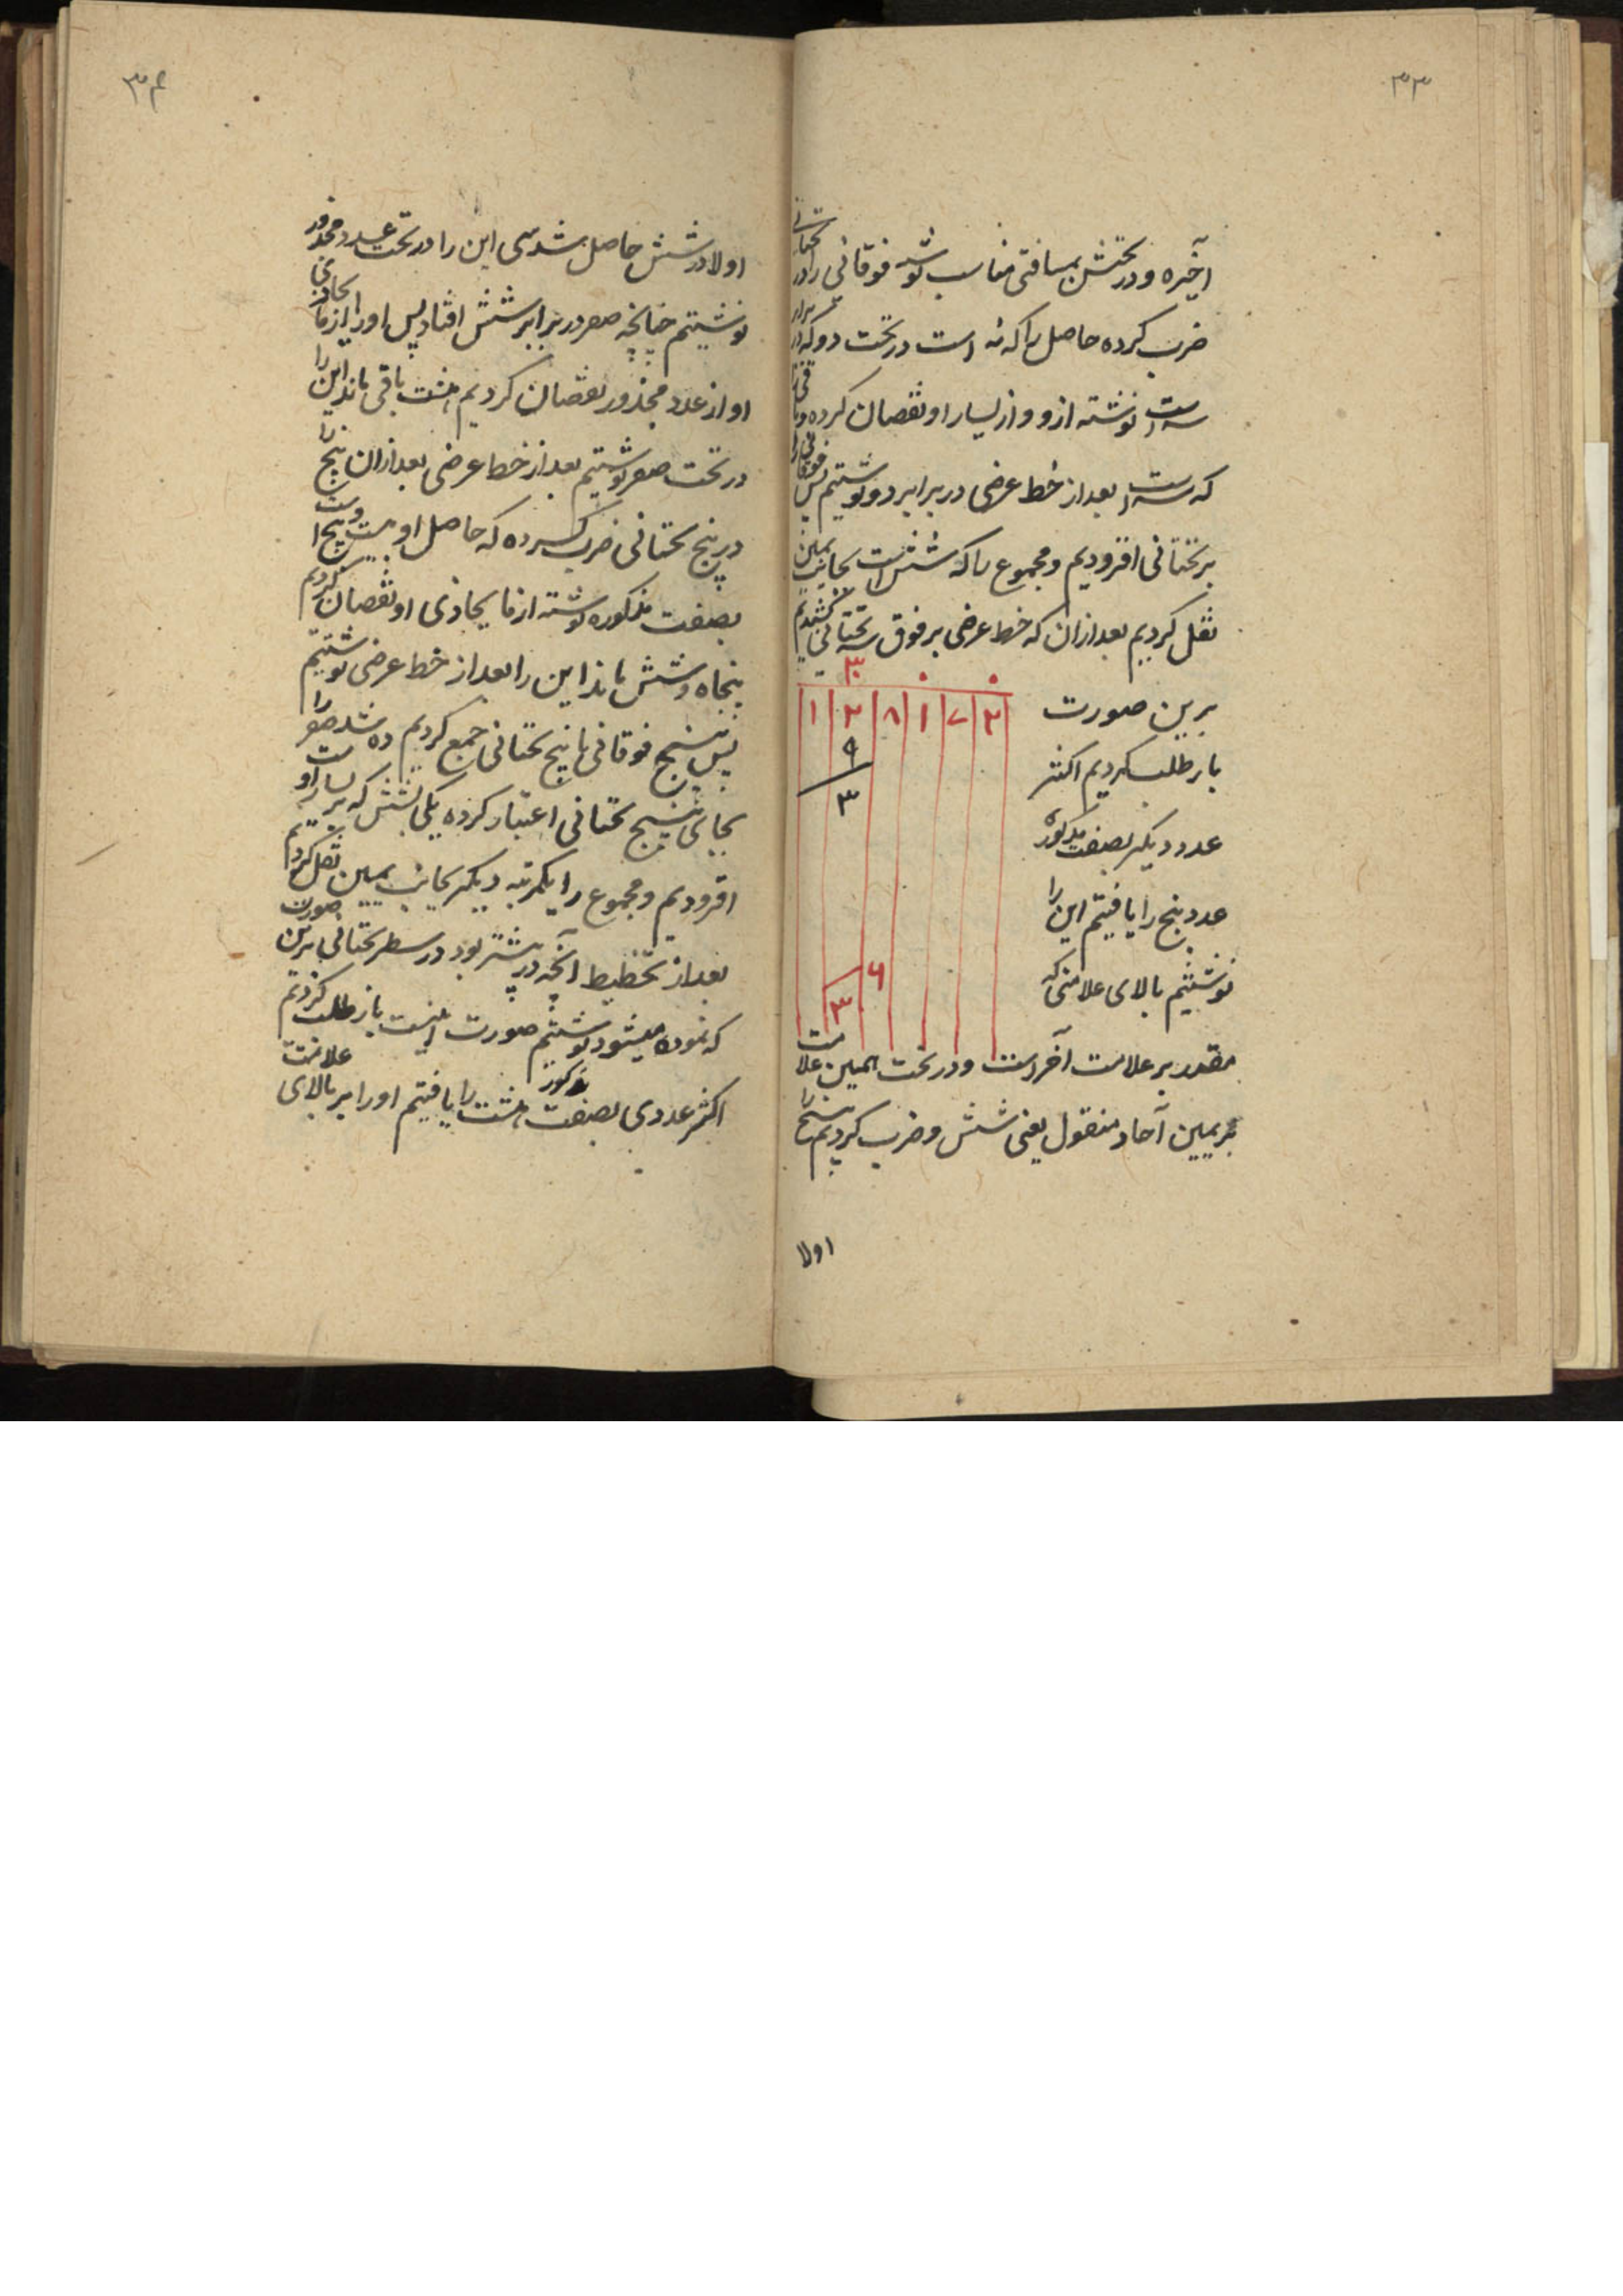 ۳۳
اخیره و در تحتش بمسافتی مناسب نوشته فوقانی را در تحتانی
ضرب کرده حاصل را که نه است در تحت دو که در برابر
سه است نوشته ازو و از یسار او نقصان کرده و باقی
که سه است بعد از خط عرضی در برابر دو نوشتیم پس فوقانی را
بر تحتانی افزودیم و مجموع را که شش است بجانب یمین
نقل کردیم بعد ازان که خط عرضی بر فوق سه تحتانی کشیدیم
برین صورت
۳
۱ ۲ ۸ ۱ ۷ ۲
۹
۳
۶
۳
باز طلب کردیم اکثر
عدد دیگر بصفت مذکوره
عدد پنج را یافتیم این را
نوشتیم بالای علامتی که
مقدم بر علامت آخر است و در تحت همین علامت
بر یمین آحاد منقول یعنی شش و ضرب کردیم پنج را
اولا
۳۴
اولا در شش حاصل شد سی این را در تحت عدد مجذور
نوشتیم چنانچه صفر در برابر شش افتاد پس او را از ما یحاذی
او از عدد مجذور نقصان کردیم هشت باقی ماند این را
در تحت صفر نوشتیم بعد از خط عرضی بعد ازان پنج را
در پنج تحتانی ضرب کرده که حاصل او بیست و پنج است
بصفت مذکوره نوشته از ما یحاذی او نقصان کردیم
پنجاه و شش ماند این را بعد از خط عرضی نوشتیم
پس پنج فوقانی با پنج تحتانی جمع کردیم ده شد صفر را
بجای پنج تحتانی اعتبار کرده یکی بشش که بر یسار اوست
افزودیم و مجموع را یکمرتبه دیگر بجانب یمین نقل کردیم
بعد از تخطیط آنچه در پیشتر بود در سطر تحتانی برین صورت
که نموده میشود نوشتیم صورت اینست باز طلب کردیم
اکثر عددی بصفت مذکور هشت را یافتیم او را بر بالای علامت